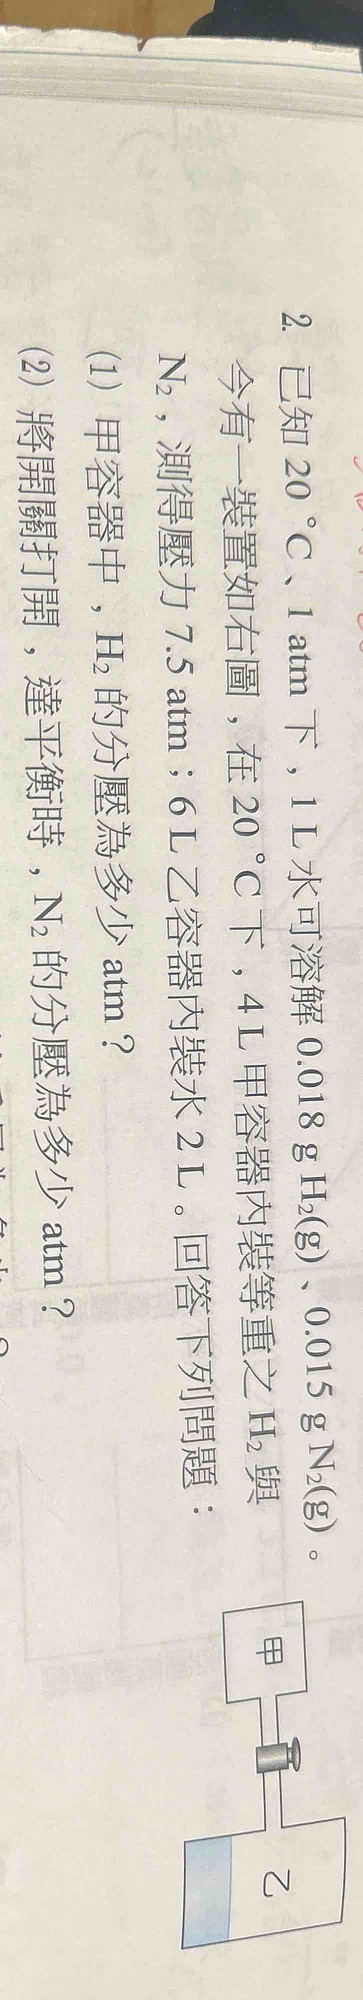 2. 已知 20 °C、1 atm 下，1 L 水可溶解 0.018 g H₂(g)、0.015 g N₂(g)。
今有一裝置如右圖，在 20 °C 下，4 L 甲容器內裝等重之 H₂ 與
N₂，測得壓力 7.5 atm；6 L 乙容器內裝水 2 L。回答下列問題：
(1) 甲容器中，H₂ 的分壓為多少 atm？
(2) 將開關打開，達平衡時，N₂ 的分壓為多少 atm？
甲
乙